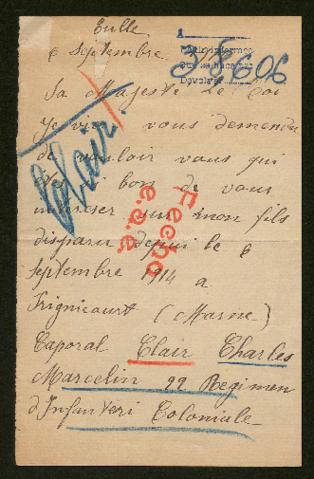 Tulle
6 Septembre
Para informes
Devolver
38606
Sa Majeste Le Roi
Je vien vous demender
de vouloir vous qui
bon de vous
intereser sur mon fils
disparu depui le 6
Septembre 1914 a
Frignicourt (Marne)
Caporal Clair Charles
Marcelin 22 Regimen
d'Infanteri Coloniale
Clair
Fecho
e.a.e.